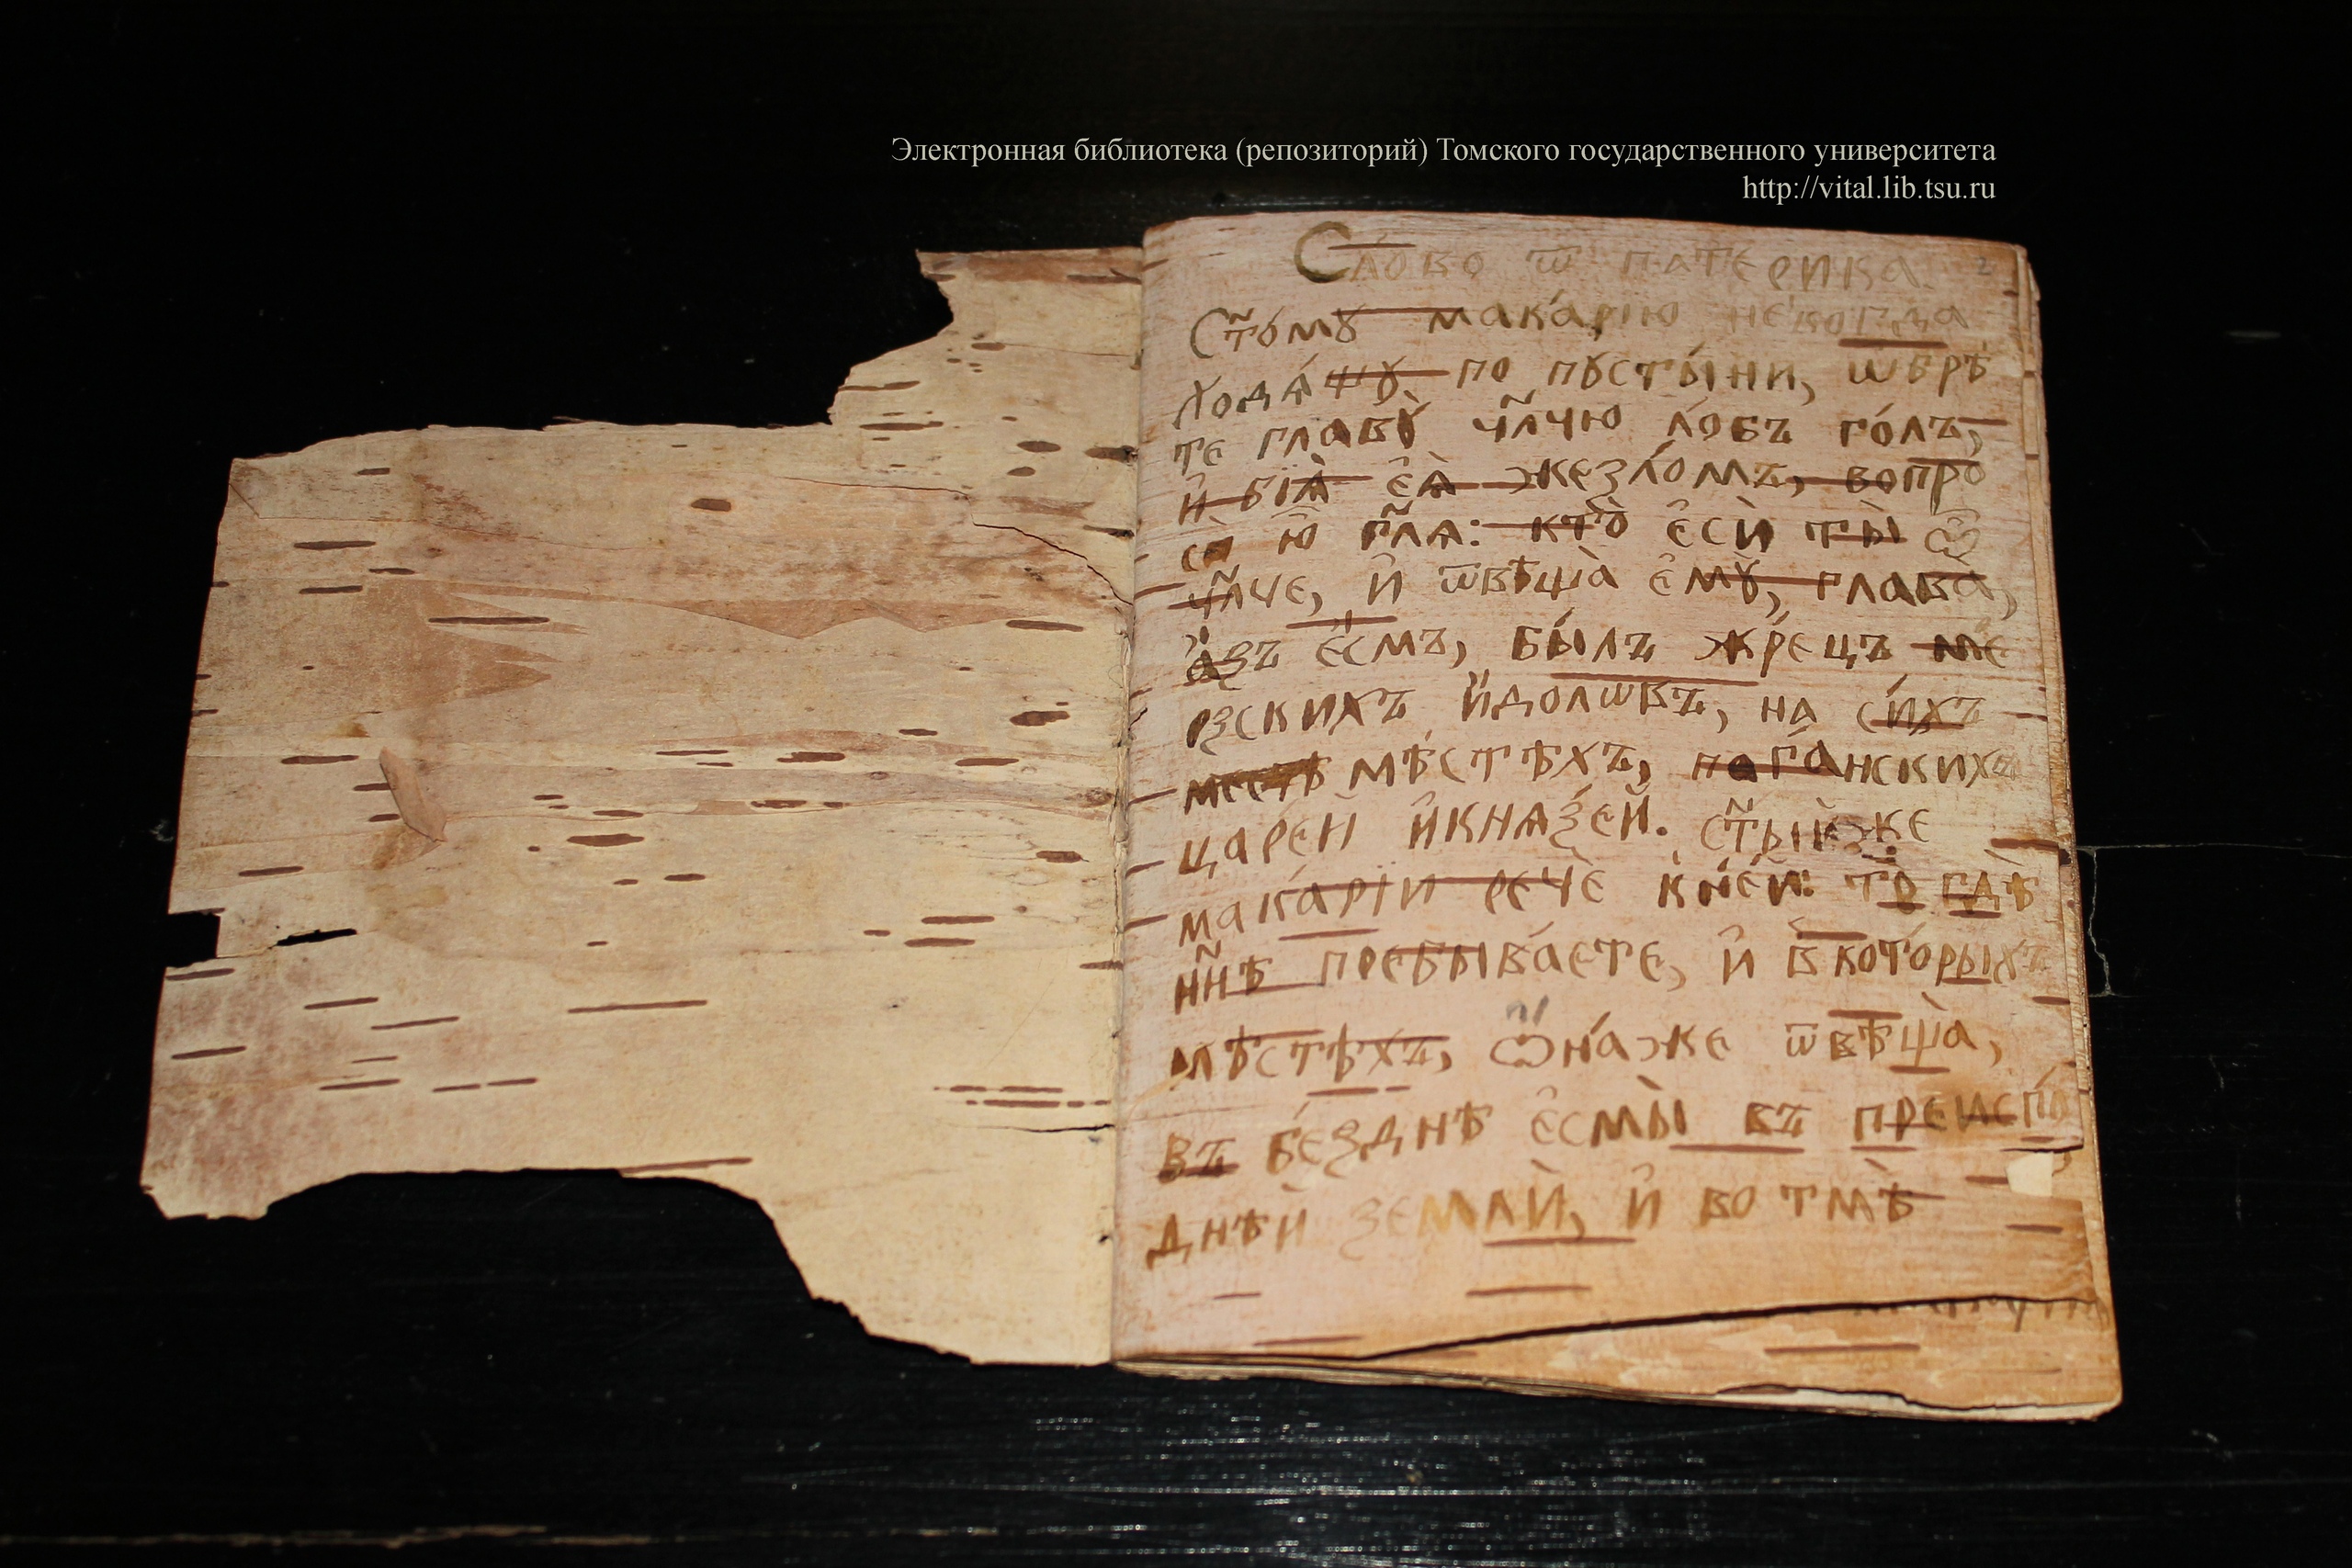 Электронная библиотека (репозиторий) Томского государственного университета
http://vital.lib.tsu.ru
Сло́во ѿ патерика. 2
Ст҃о́мꙋ мака́рїю не́когда
ходѧ́щꙋ по пꙋсты́ни, ѡбрѣ
те главꙋ̀ чл҃чю ло́бъ го́лъ,
и҆ бїѧ̀ є҆ѧ̀ жезло́мъ, вопро
сѝ ю҆̀ гл҃ѧ: кто̀ є҆сѝ ты̀ ѽ
чл҃че, и҆ ѿвѣща̀ є҆мꙋ̀, глава̀,
а҆́зъ є҆́смъ, бы́лъ жре́цъ ме
рзскихъ и҆́долѡвъ, на си́хъ
мѣ́стѣхъ, пога́нскихъ
царе́й и҆кнѧзе́й. ст҃ы́йже
мака́рїи речѐ кне́й: то̀ гдѣ̀
нн҃ѣ пребыва́ете, и҆ вкото́рыхъ
мѣ́стѣхъ, ѻ҆на́же ѿвѣща̀,
въ бе́зднѣ є҆смы̀ въ преиспо́
днѣй землѝ, и҆ во тмѣ̀